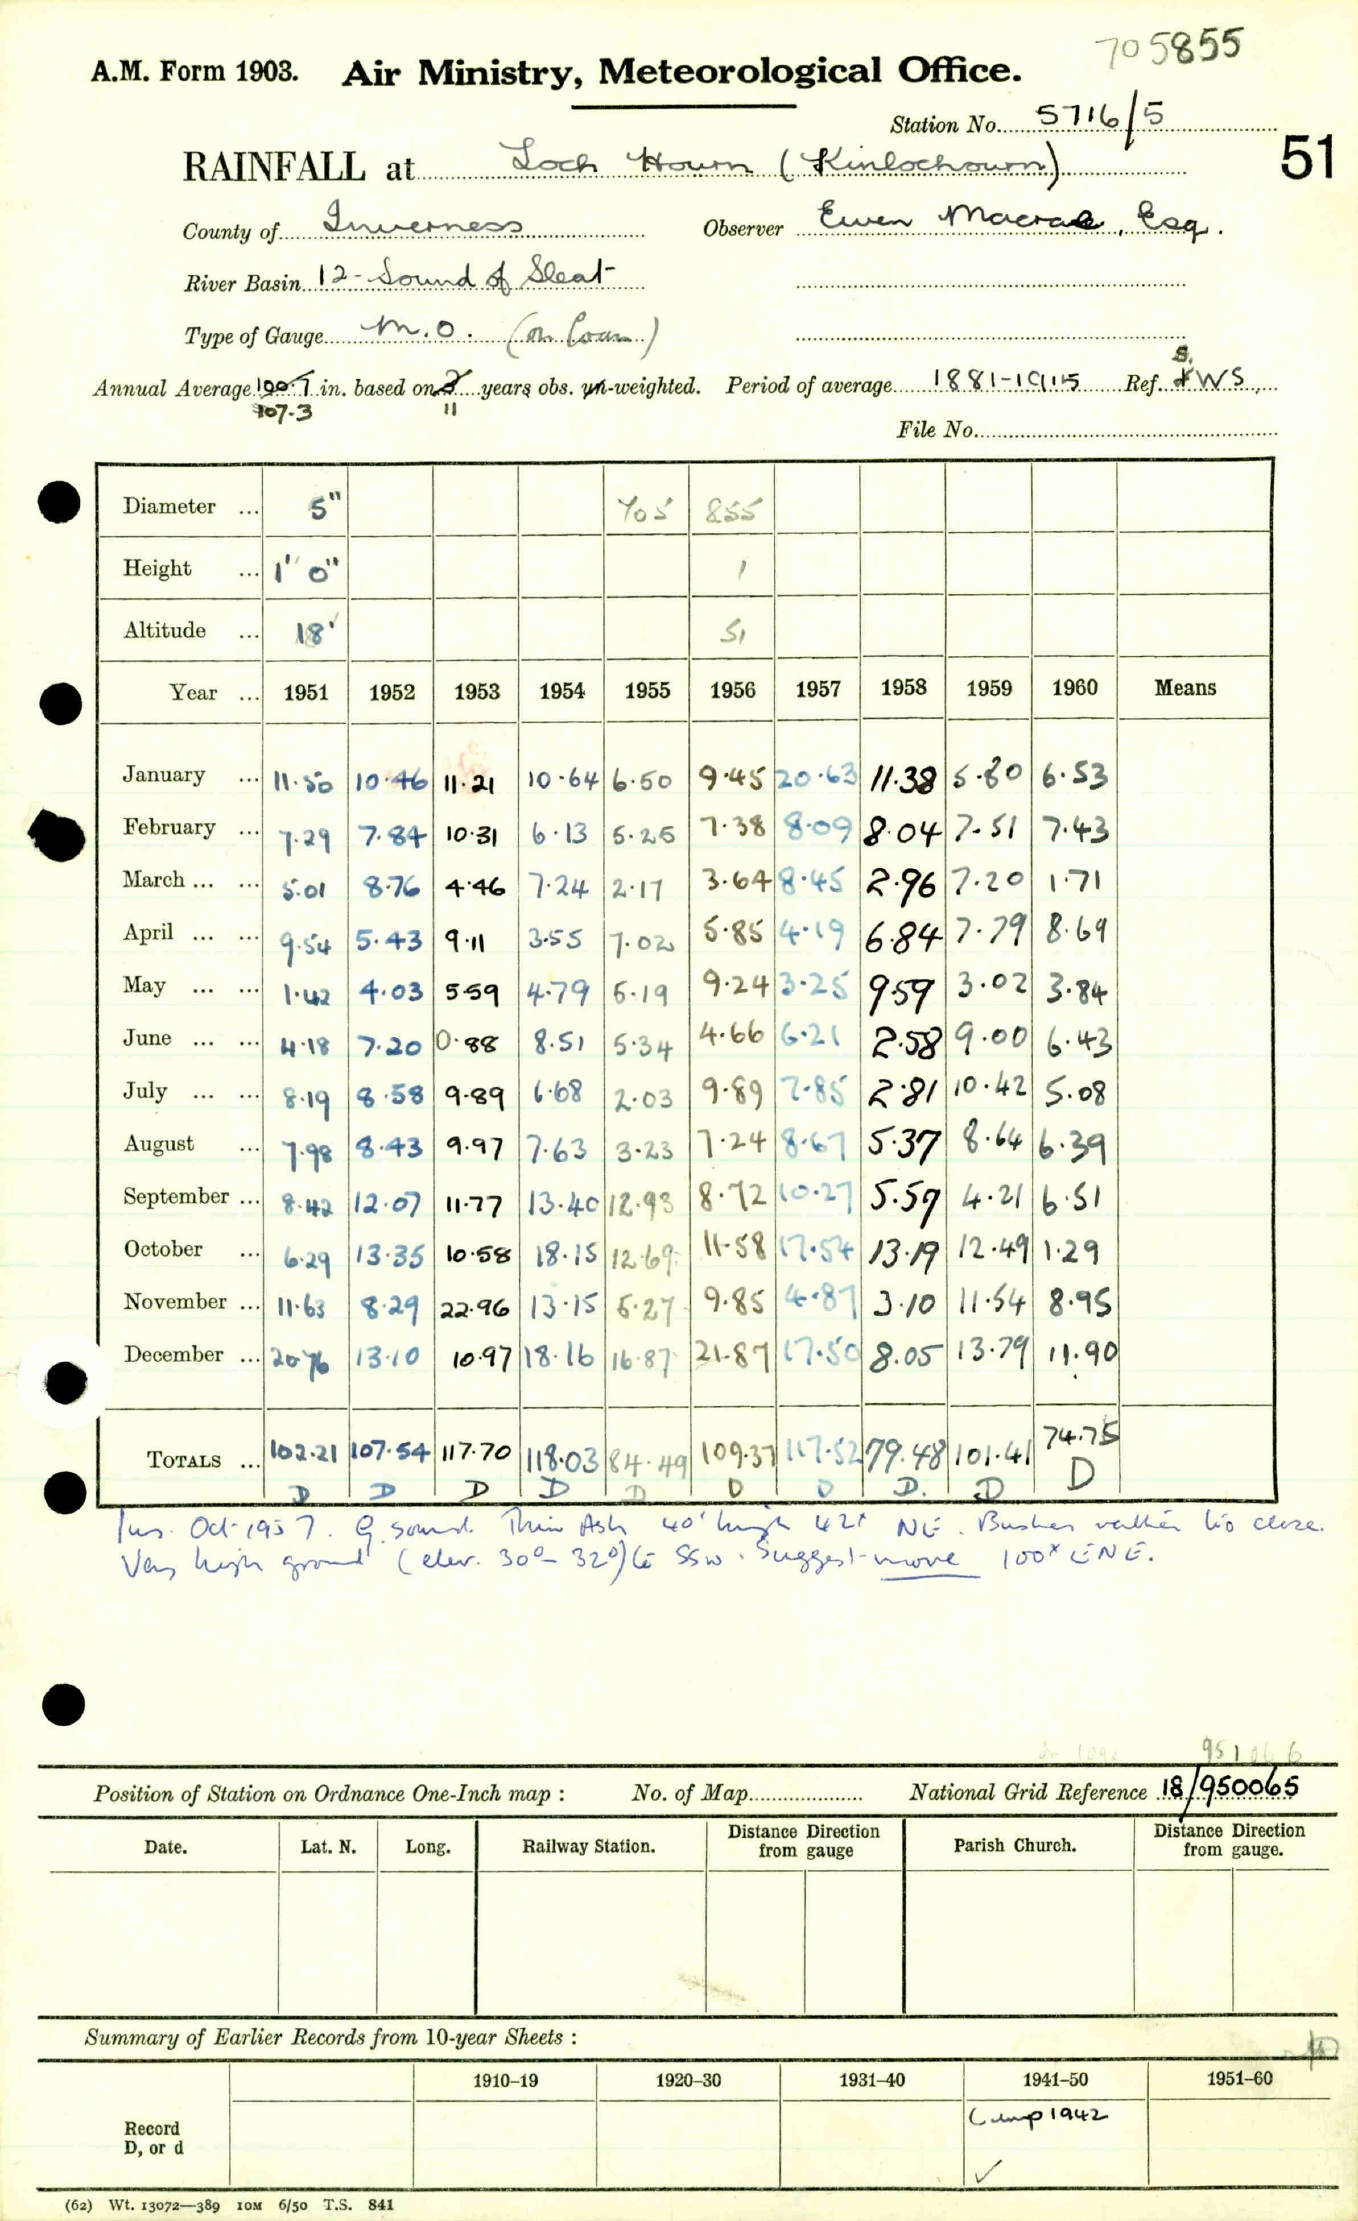 705855
A.M. Form 1903. Air Ministry, Meteorological Office.
Station No. 5716/5
51
RAINFALL at Loch Hourn (Kinlochourn)
County of Inverness Observer Ewen Macrae, Esq.
River Basin 12 - Sound of Sleat
Type of Gauge M.O. (on loan)
Annual Average 100.7 in. based on years obs. un-weighted. Period of average 1881-1915 Ref. S. WS
107.3 11
File No.
Diameter ... 5" 705 855
Height ... 1' 0" 1
Altitude ... 18' 51
Year ... 1951 1952 1953 1954 1955 1956 1957 1958 1959 1960 Means
January ... 11.50 10.46 11.21 10.64 6.50 9.45 20.63 11.38 5.80 6.53
February ... 7.29 7.84 10.31 6.13 5.25 7.38 8.09 8.04 7.51 7.43
March ... ... 5.01 8.76 4.46 7.24 2.17 3.64 8.45 2.96 7.20 1.71
April ... ... 9.54 5.43 9.11 3.55 7.02 5.85 4.19 6.84 7.79 8.69
May ... ... 1.42 4.03 5.59 4.79 5.19 9.24 3.25 9.59 3.02 3.84
June ... ... 4.18 7.20 0.88 8.51 5.34 4.66 6.21 2.58 9.00 6.43
July ... ... 8.19 8.58 9.89 6.68 2.03 9.89 7.85 2.81 10.42 5.08
August ... 7.98 8.43 9.97 7.63 3.23 7.24 8.67 5.37 8.64 6.39
September ... 8.42 12.07 11.77 13.40 12.93 8.72 10.27 5.57 4.21 6.51
October ... 6.29 13.35 10.58 18.15 12.69 11.58 17.54 13.19 12.49 1.29
November ... 11.63 8.29 22.96 13.15 5.27 9.85 4.87 3.10 11.54 8.95
December ... 20.76 13.10 10.97 18.16 16.87 21.87 17.50 8.05 13.79 11.90
TOTALS ... 102.21 107.54 117.70 118.03 84.49 109.37 117.52 79.48 101.41 74.75
D D D D D D D D. D D
Ins. Oct 1957. G. sound. Thin Ash 40' high 42x NE. Bushes rather too close.
Very high ground (elev. 30°- 32°) to SSW. Suggest move 100x ENE.
951066
Position of Station on Ordnance One-Inch map : No. of Map National Grid Reference 18/950065
Date. Lat. N. Long. Railway Station. Distance from gauge Direction Parish Church. Distance from gauge. Direction
Summary of Earlier Records from 10-year Sheets :
1910–19 1920–30 1931–40 1941–50 1951–60
Record D, or d
Comp 1942
✓
(62) Wt. 13072—389 10M 6/50 T.S. 841